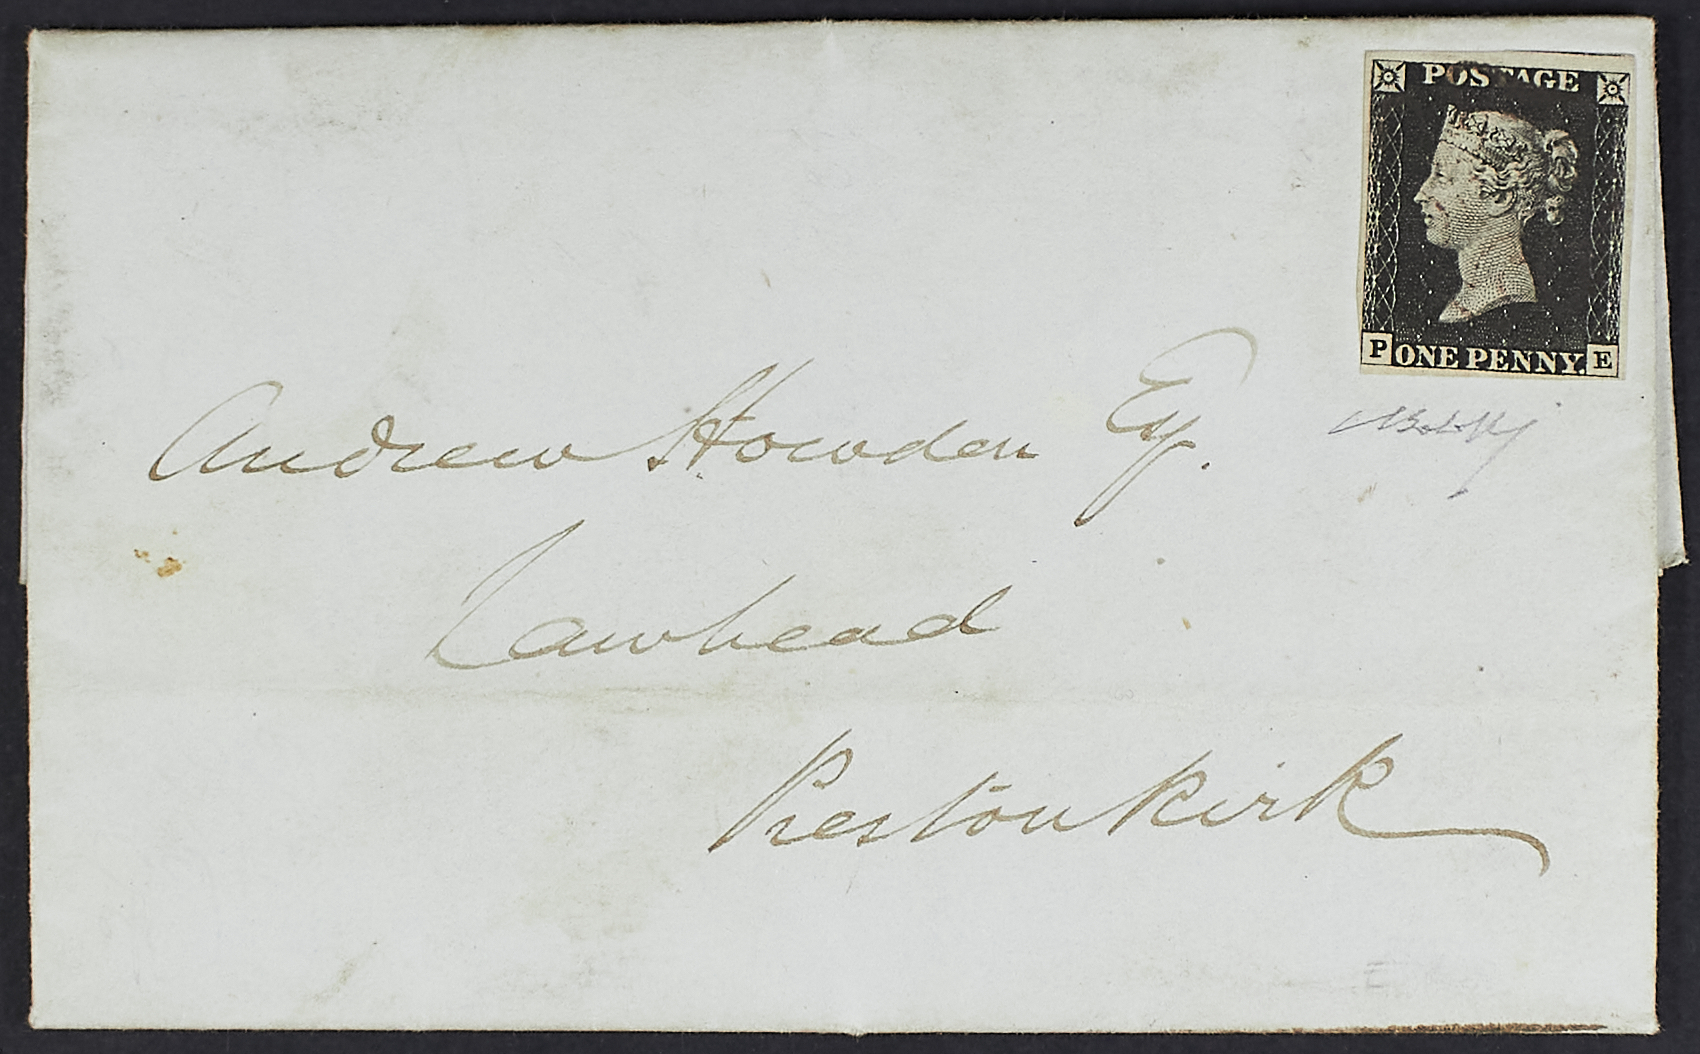 POSTAGE
P ONE PENNY. E
Andrew Howden Esq.
Lawhead
Prestonkirk